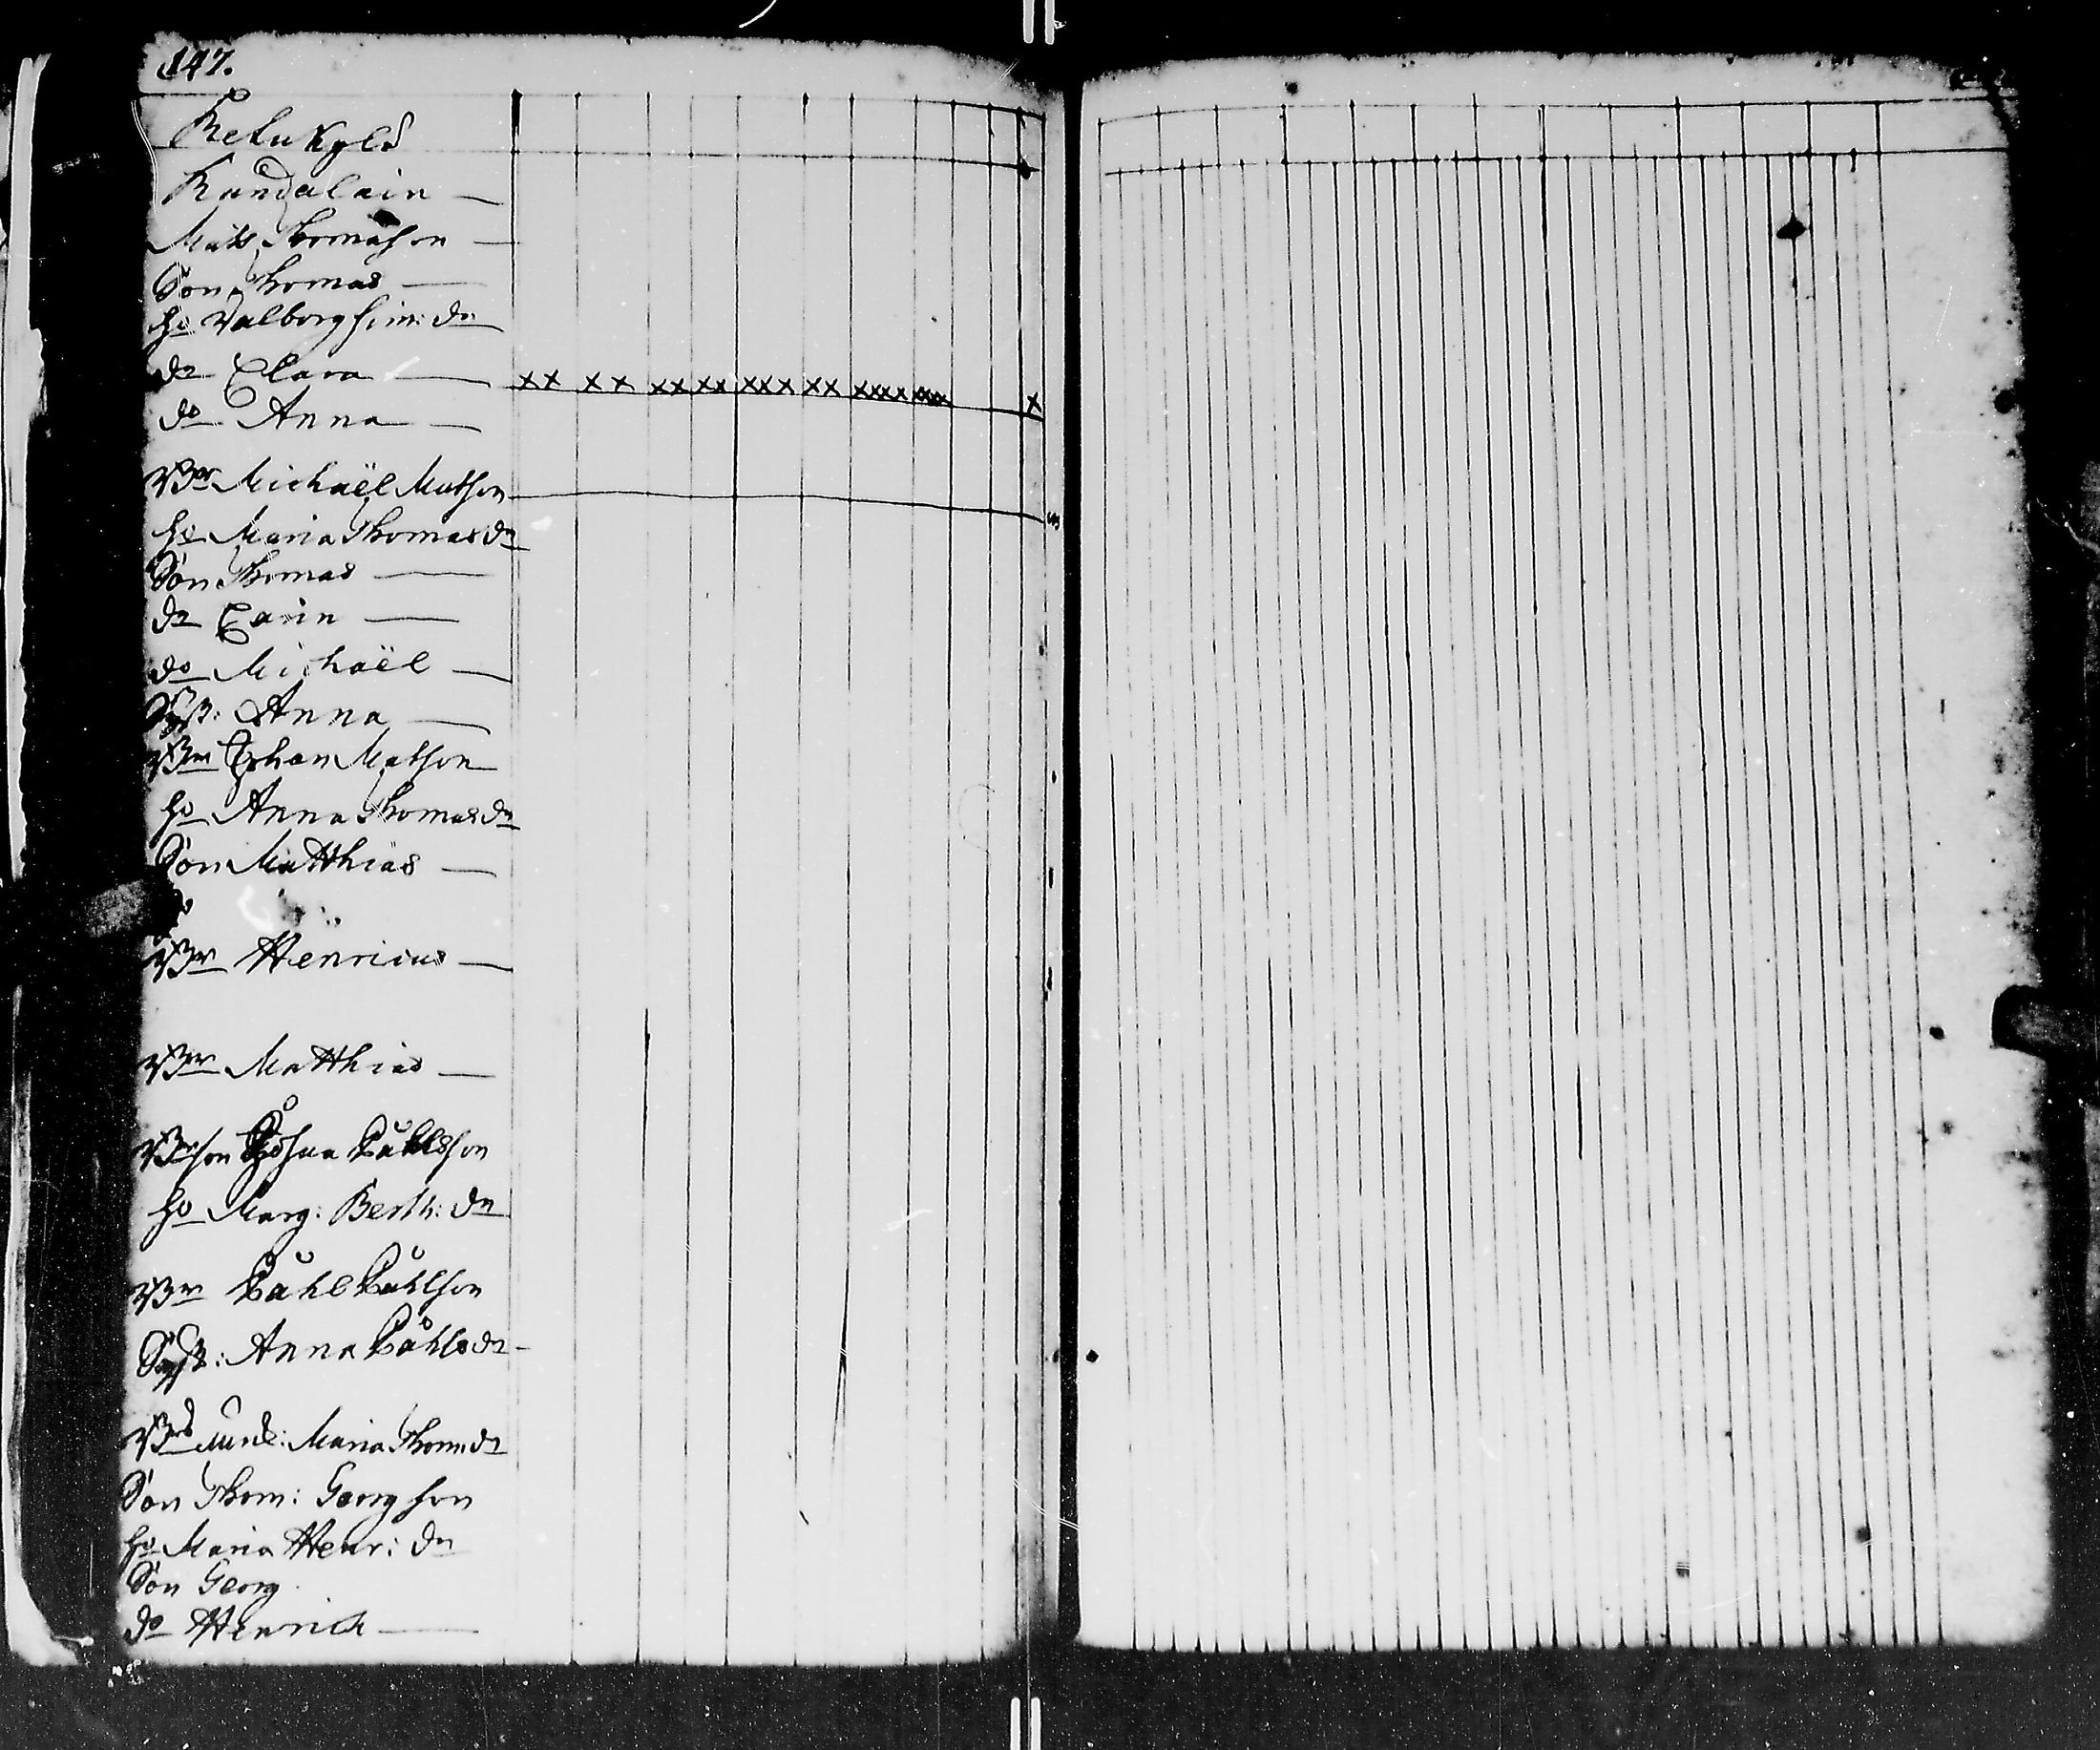 147.
Retukylä
Kandalain
Mats Thomasson
Son Thomas
ho Valborg Sim: dr
dr Clara xx xx xx xx xxx xx xxxx xxx x
do Anna
Br Michaël Matson
ho Maria Thomasdr
Son Thomas
dr Carin
do Michaël
Syst: Anna
Br Johan Matson
ho Anna Thomasdr
Son Matthias
Br Henricus
Br Matthias
Brson Josua Påhlsson
ho Marg: Berth: dr
Br Påhl Påhlson
Syst: Anna Påhlsdr
Maria Thom dr
Son Thom: Georgson
ho Maria Henr: dr
Son Georg
do Henrich